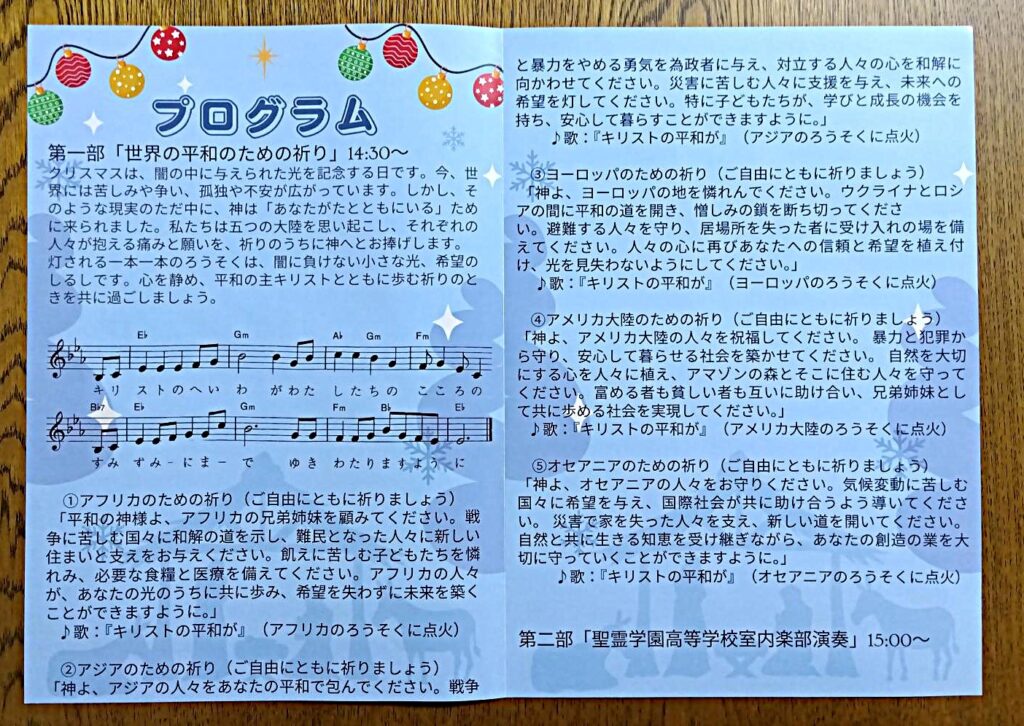 プログラム
第一部「世界の平和のための祈り」14:30〜
クリスマスは、闇の中に与えられた光を記念する日です。今、世
界には苦しみや争い、孤独や不安が広がっています。しかし、そ
のような現実のただ中に、神は「あなたがたとともにいる」ため
に来られました。私たちは五つの大陸を思い起こし、それぞれの
人々が抱える痛みと願いを、祈りのうちに神へとお捧げします。
灯される一本一本のろうそくは、闇に負けない小さな光、希望の
しるしです。心を静め、平和の主キリストとともに歩む祈りのと
きを共に過ごしましょう。
E♭ Gm A♭ Gm Fm
キリ ストのへい わ がわた したちの こころの
B♭7 E♭ Gm Fm B♭ E♭
すみ ずみ-にま-で ゆき わたりますように
①アフリカのための祈り（ご自由にともに祈りましょう）
「平和の神様よ、アフリカの兄弟姉妹を顧みてください。戦
争に苦しむ国々に和解の道を示し、難民となった人々に新しい
住まいと支えをお与えください。飢えに苦しむ子どもたちを憐
れみ、必要な食糧と医療を備えてください。アフリカの人々
が、あなたの光のうちに共に歩み、希望を失わずに未来を築く
ことができますように。」
♪歌：『キリストの平和が』（アフリカのろうそくに点火）
②アジアのための祈り（ご自由にともに祈りましょう）
「神よ、アジアの人々をあなたの平和で包んでください。戦争
と暴力をやめる勇気を為政者に与え、対立する人々の心を和解に
向かわせてください。災害に苦しむ人々に支援を与え、未来への
希望を灯してください。特に子どもたちが、学びと成長の機会を
持ち、安心して暮らすことができますように。」
♪歌：『キリストの平和が』（アジアのろうそくに点火）
③ヨーロッパのための祈り（ご自由にともに祈りましょう）
「神よ、ヨーロッパの地を憐れんでください。ウクライナとロシ
アの間に平和の道を開き、憎しみの鎖を断ち切ってくださ
い。避難する人々を守り、居場所を失った者に受け入れの場を備
えてください。人々の心に再びあなたへの信頼と希望を植え付
け、光を見失わないようにしてください。」
♪歌：『キリストの平和が』（ヨーロッパのろうそくに点火）
④アメリカ大陸のための祈り（ご自由にともに祈りましょう）
「神よ、アメリカ大陸の人々を祝福してください。 暴力と犯罪か
ら守り、安心して暮らせる社会を築かせてください。 自然を大切
にする心を人々に植え、アマゾンの森とそこに住む人々を守って
ください。富める者も貧しい者も互いに助け合い、兄弟姉妹とし
て共に歩める社会を実現してください。」
♪歌：『キリストの平和が』（アメリカ大陸のろうそくに点火）
⑤オセアニアのための祈り（ご自由にともに祈りましょう）
「神よ、オセアニアの人々をお守りください。気候変動に苦しむ
国々に希望を与え、国際社会が共に助け合うよう導いてくださ
い。 災害で家を失った人々を支え、新しい道を開いてください。
自然と共に生きる知恵を受け継ぎながら、あなたの創造の業を大
切に守っていくことができますように。」
♪歌：『キリストの平和が』（オセアニアのろうそくに点火）
第二部「聖霊学園高等学校室内楽部演奏」15:00〜